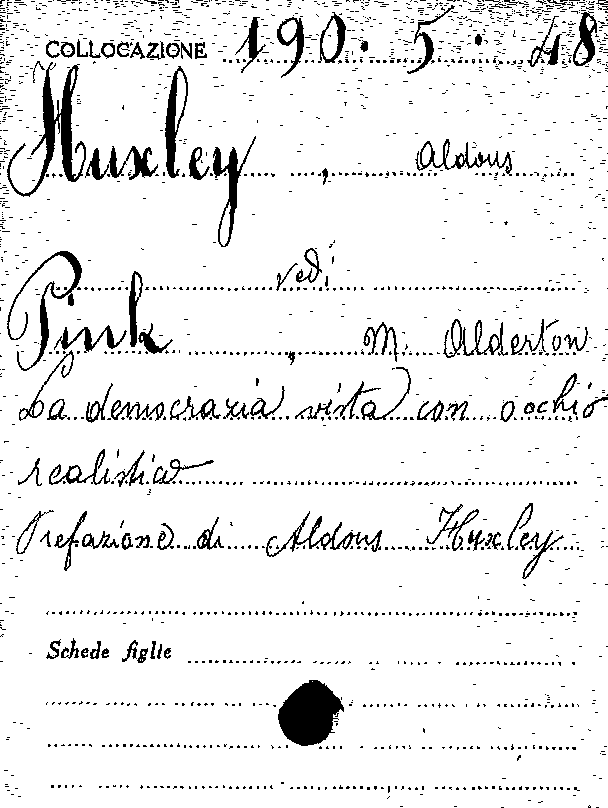 COLLOCAZIONE 190. 5. 48
Huxley, Aldous
vedi
Pink, M. Alderton
La democrazia vista con occhio
realistico
Prefazione di Aldous Huxley
Schede figlie